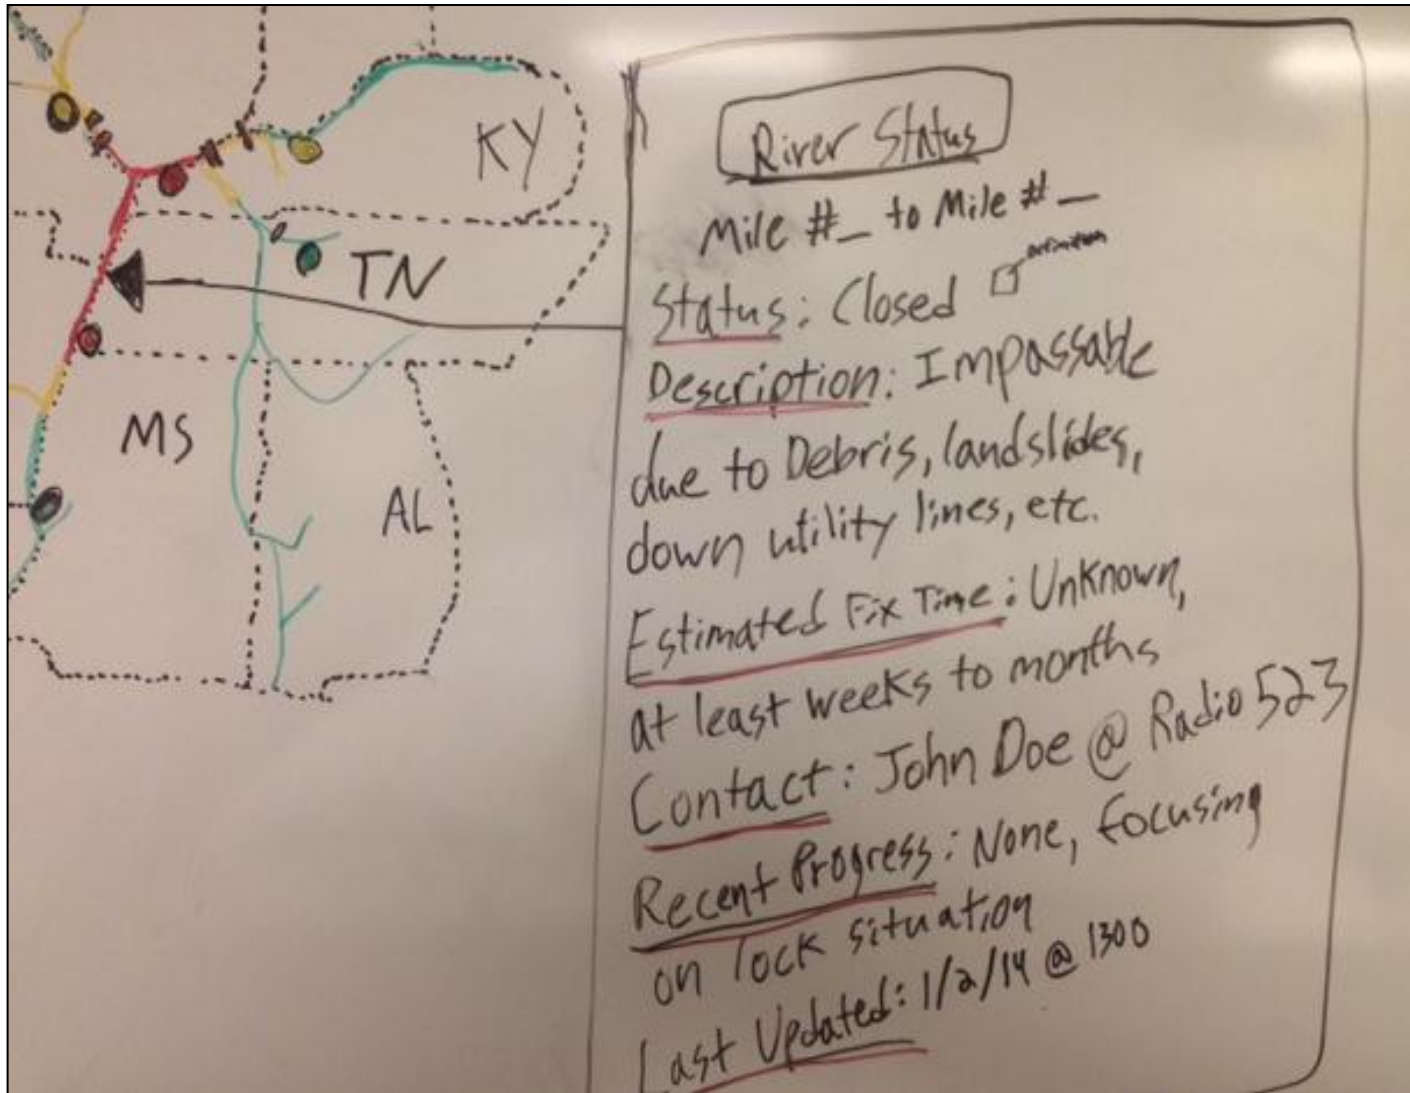 KY
TN
MS
AL
River Status
Mile #_ to Mile #_
Status: Closed
Description: Impassable
due to Debris, landslides,
down utility lines, etc.
Estimated Fix Time: Unknown,
at least weeks to months
Contact: John Doe @ Radio 523
Recent Progress: None, focusing
on lock situation
Last Updated: 1/2/14 @ 1300